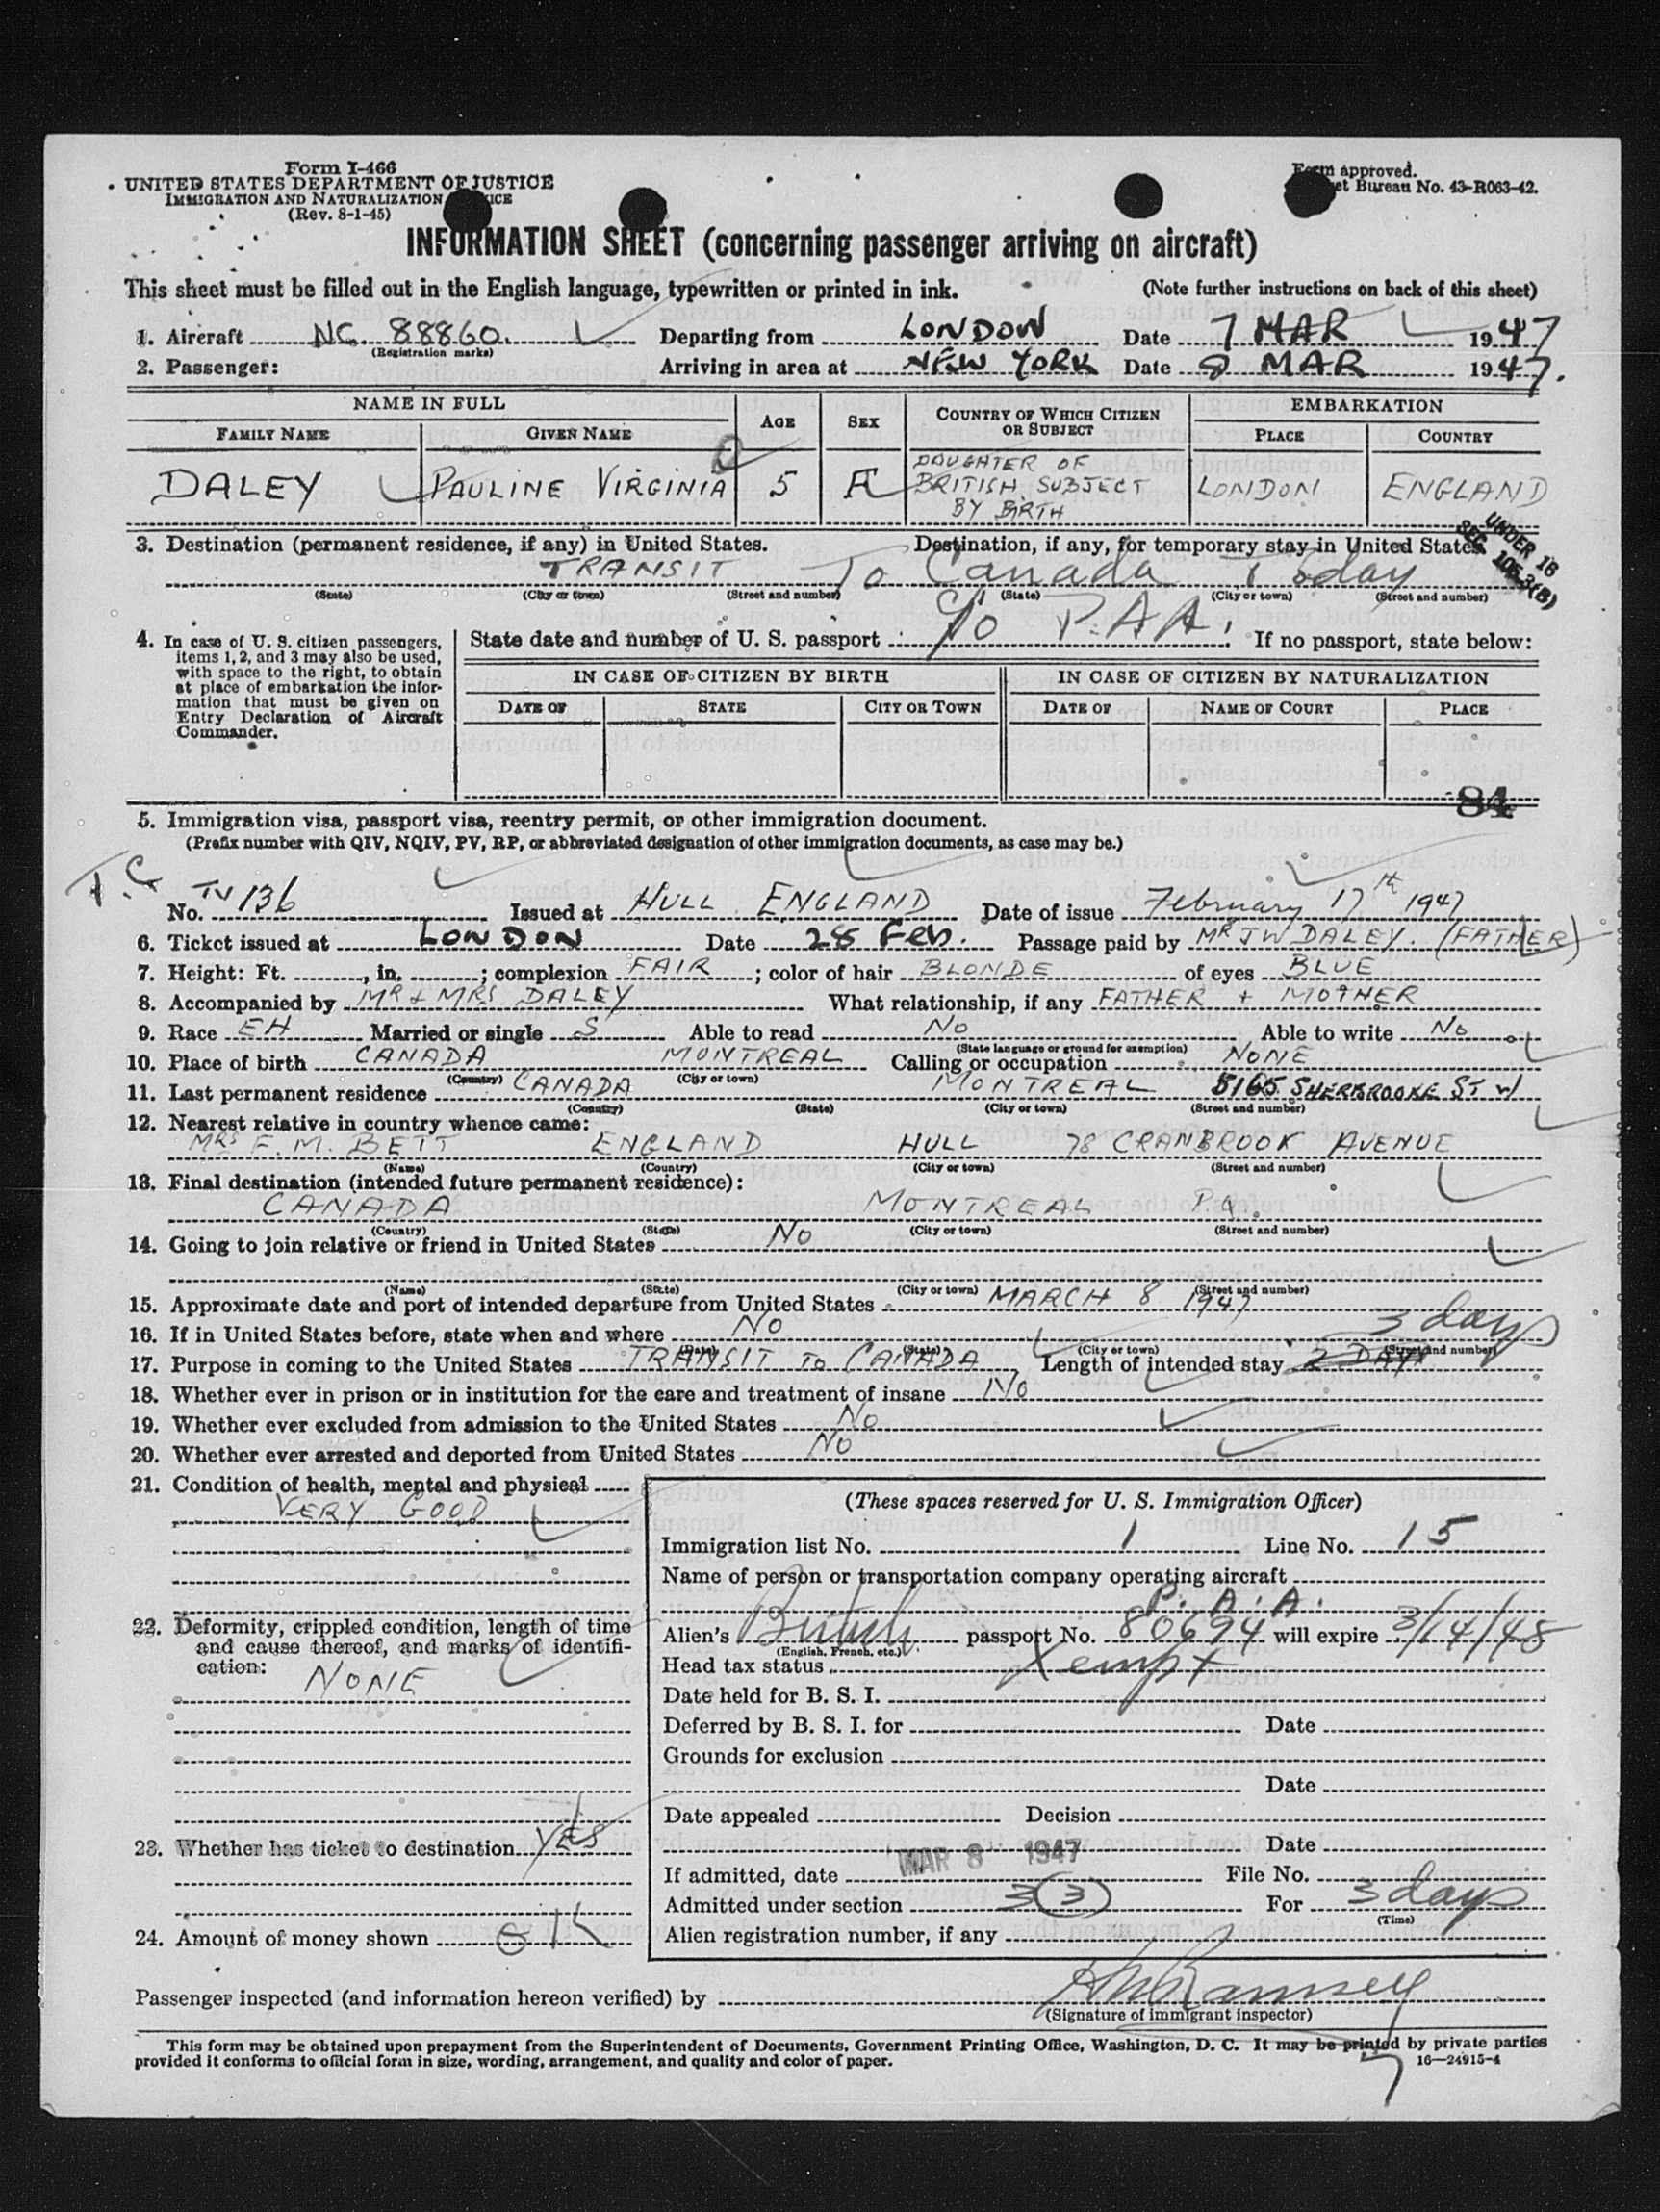 Form I-466
UNITED STATES DEPARTMENT OF JUSTICE
IMMIGRATION AND NATURALIZATION
(Rev. 8-1-45)
Form approved.
et Bureau No. 43-R063-42.
INFORMATION SHEET (concerning passenger arriving on aircraft)
This sheet must be filled out in the English language, typewritten or printed in ink. (Note further instructions on back of this sheet)
1. Aircraft NC 88860. Departing from LONDON Date 7 MAR 1947
(Registration marks)
2. Passenger: Arriving in area at NEW YORK Date 8 MAR 1947.
NAME IN FULL AGE SEX COUNTRY OF WHICH CITIZEN OR SUBJECT EMBARKATION
FAMILY NAME GIVEN NAME PLACE COUNTRY
DALEY PAULINE VIRGINIA 5 F DAUGHTER OF BRITISH SUBJECT BY BIRTH LONDON ENGLAND
UNDER 16
SEC. 105.3(B)
3. Destination (permanent residence, if any) in United States. Destination, if any, for temporary stay in United States.
TRANSIT To Canada
(State) (City or town) (Street and number) (State) (City or town) (Street and number)
4. In case of U. S. citizen passengers, items 1, 2, and 3 may also be used, with space to the right, to obtain at place of embarkation the information that must be given on Entry Declaration of Aircraft Commander.
State date and number of U. S. passport c/o P.A.A. If no passport, state below:
IN CASE OF CITIZEN BY BIRTH IN CASE OF CITIZEN BY NATURALIZATION
DATE OF STATE CITY OR TOWN DATE OF NAME OF COURT PLACE
84
5. Immigration visa, passport visa, reentry permit, or other immigration document.
(Prefix number with QIV, NQIV, PV, RP, or abbreviated designation of other immigration documents, as case may be.)
T.C
No. TV 136 Issued at HULL ENGLAND Date of issue February 17th 1947
6. Ticket issued at LONDON Date 28 Feb. Passage paid by MR JW DALEY. (FATHER)
7. Height: Ft. , in. ; complexion FAIR ; color of hair BLONDE of eyes BLUE
8. Accompanied by MR & MRS DALEY What relationship, if any FATHER + MOTHER
9. Race EH Married or single S Able to read No Able to write No
(State language or ground for exemption)
10. Place of birth CANADA MONTREAL Calling or occupation NONE
(Country) (City or town)
11. Last permanent residence CANADA MONTREAL 5165 SHERBROOKE ST W
(Country) (State) (City or town) (Street and number)
12. Nearest relative in country whence came:
MRS F. M. BETT ENGLAND HULL 78 CRANBROOK AVENUE
(Name) (Country) (City or town) (Street and number)
13. Final destination (intended future permanent residence):
CANADA MONTREAL P.Q.
(Country) (State) (City or town) (Street and number)
14. Going to join relative or friend in United States No
(Name) (State) (City or town) (Street and number)
15. Approximate date and port of intended departure from United States MARCH 8 1947
16. If in United States before, state when and where No
(Date) (State) (City or town) (Street and number)
3 days
17. Purpose in coming to the United States TRANSIT To CANADA Length of intended stay 2 DAYS
18. Whether ever in prison or in institution for the care and treatment of insane No
19. Whether ever excluded from admission to the United States No
20. Whether ever arrested and deported from United States No
21. Condition of health, mental and physical
VERY GOOD
22. Deformity, crippled condition, length of time and cause thereof, and marks of identification:
NONE
23. Whether has ticket to destination YES
24. Amount of money shown
(These spaces reserved for U. S. Immigration Officer)
Immigration list No. 1 Line No. 15
Name of person or transportation company operating aircraft
P. A. A.
Alien's British passport No. 80694 will expire 3/14/48
(English, French, etc.)
Head tax status Xempt
Date held for B. S. I.
Deferred by B. S. I. for Date
Grounds for exclusion
Date
Date appealed Decision
Date
If admitted, date MAR 8 1947 File No.
Admitted under section 3(3) For 3 days
(Time)
Alien registration number, if any
Passenger inspected (and information hereon verified) by Ramsey
(Signature of immigrant inspector)
This form may be obtained upon prepayment from the Superintendent of Documents, Government Printing Office, Washington, D. C. It may be printed by private parties
provided it conforms to official form in size, wording, arrangement, and quality and color of paper. 16—24915-4
7